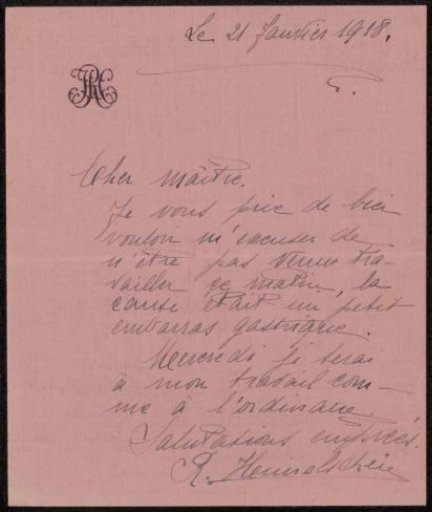 Le 21 Janvier 1918.
Cher maître.
Je vous prie de bien
vouloir m'excuser de
n'être pas venue tra-
vailler ce matin, la
cause était un petit
embarras gastrique.
Mercredi je serai
à mon travail com-
me à l'ordinaire
Salutations empressées.
R.